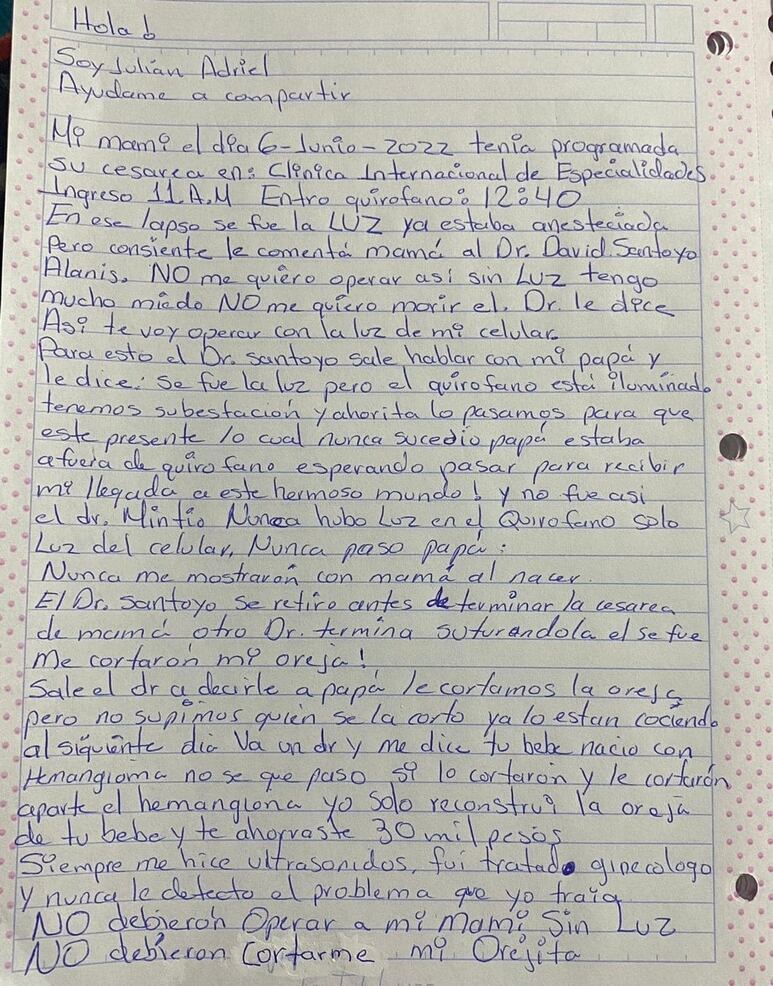 Hola!
Soy Julián Adriel
Ayudame a compartir
Mi mami el día 6-Junio-2022 tenía programada
su cesarea en: Clínica Internacional de Especialidades
Ingreso 11 A.M Entro quirofano: 12:40
En ese lapso se fue la LUZ ya estaba anesteciada
Pero consiente le comentá mamá al Dr. David Santoyo
Alanis. NO me quiero operar así sin Luz tengo
mucho miedo NO me quiero morir el. Dr. le dice
Así te voy operar con la luz de mi celular.
Para esto el Dr. santoyo sale hablar con mi papá y
le dice: se fue la luz pero el quirofano está iluminado
tenemos subestación y ahorita lo pasamos para que
este presente lo cual nunca sucedio papá estaba
afuera de quirofano esperando pasar para recibir
mi llegada a este hermoso mundo! y no fue asi
el dr. Mintio Nunca hubo Luz en el Quirofano solo
Luz del celular, Nunca paso papá:
Nunca me mostrarón con mamá al nacer.
El Dr. Santoyo se retiro antes de terminar la cesarea
de mamá otro Dr. termina suturandola el se fue
Me cortarón mi oreja!
Sale el dr a decirle a papá le cortamos la oreja
pero no supimos quién se la corto ya lo estan cociendo
al siguiente dia Va un dr y me dice tu bebe nacio con
Hemangioma no se que paso si lo cortarón y le cortarón
aparte el hemangiona yo solo reconstrui la oreja
de tu bebe y te ahorraste 30 mil pesos
Siempre me hice ultrasonidos, fui tratado ginecologo
y nunca le detecto el problema que yo traia
NO debierón Operar a mi Mami Sin Luz
NO debieron Cortarme mi Orejita